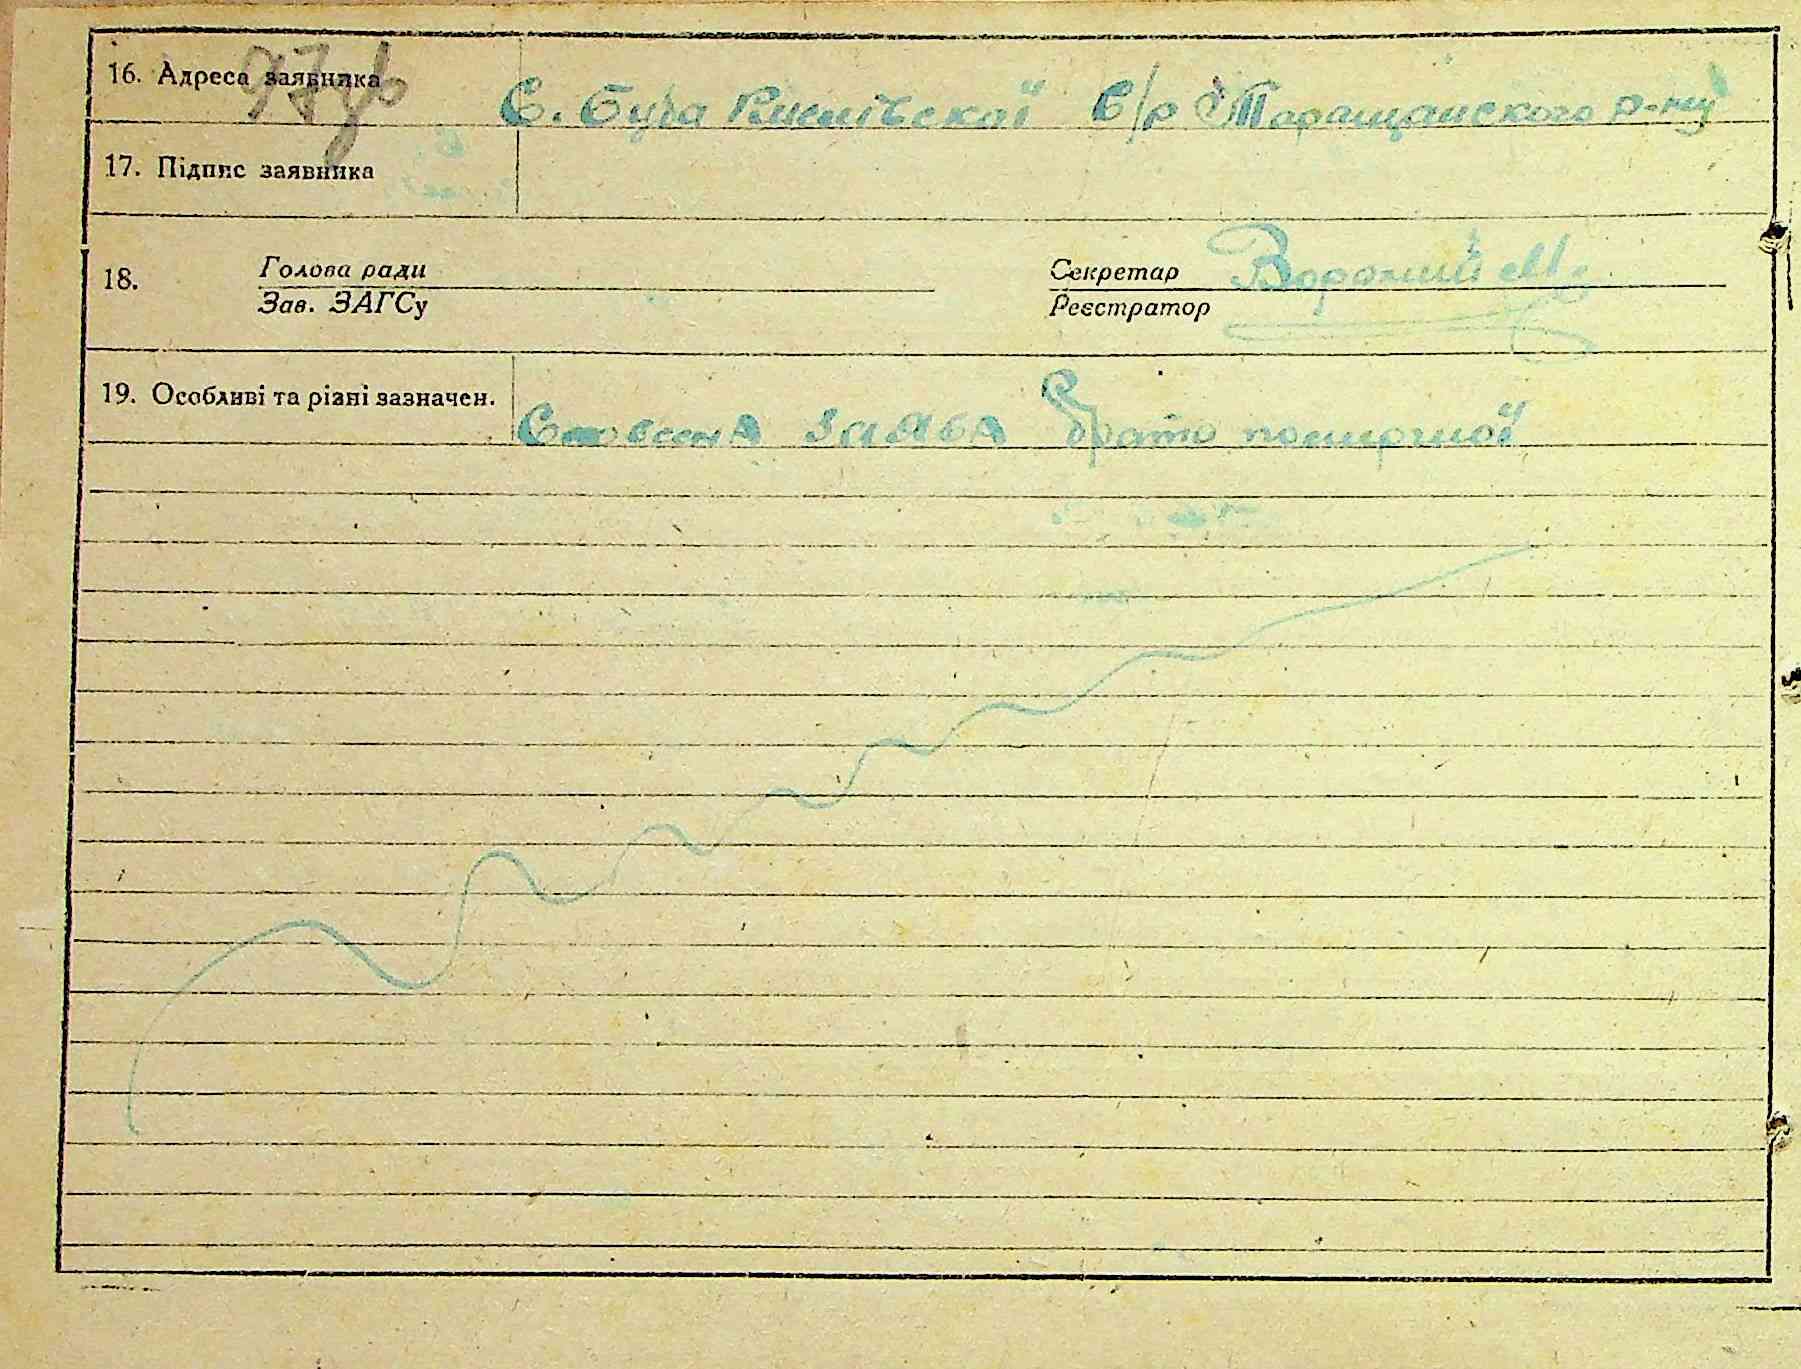 97
16. Адреса заявника С. Буда с/р Таращанского р-ну
17. Підпис заявника
18. Голова ради Секретар
Зав. ЗАГСу Реєстратор
19. Особливі та різні зазначен. Словесна заява брата